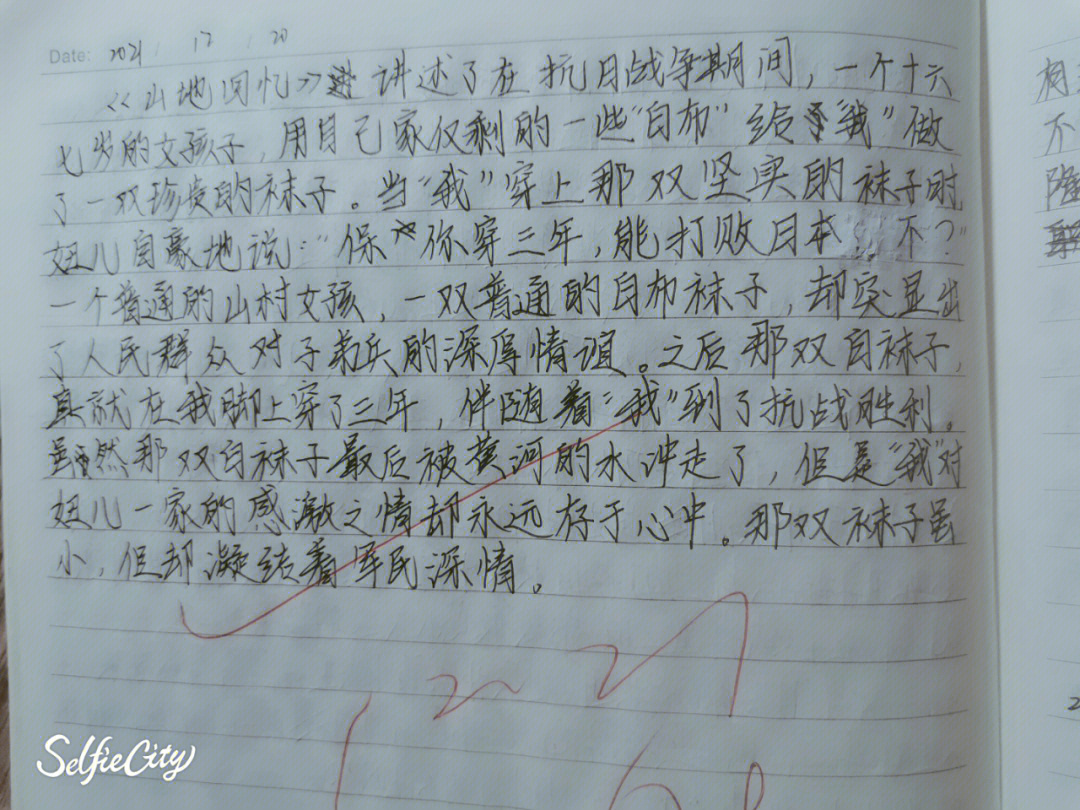 Date: 2021 12 20
《山地回忆》讲述了在抗日战争期间，一个十六
七岁的女孩子，用自己家仅剩的一些"白布"给"我"做
了一双珍贵的袜子。当"我"穿上那双坚实的袜子时
妞儿自豪地说："保你穿三年，能打败日本，不？"
一个普通的山村女孩，一双普通的白布袜子，却突显出
了人民群众对子弟兵的深厚情谊。之后那双白袜子，
真就在我脚上穿了三年，伴随着"我"到了抗战胜利。
虽然那双白袜子最后被黄河的水冲走了，但是"我"对
妞儿一家的感激之情却永远存于心中。那双袜子虽
小，但却凝结着军民深情。
12-27
SelfieCity
相
不